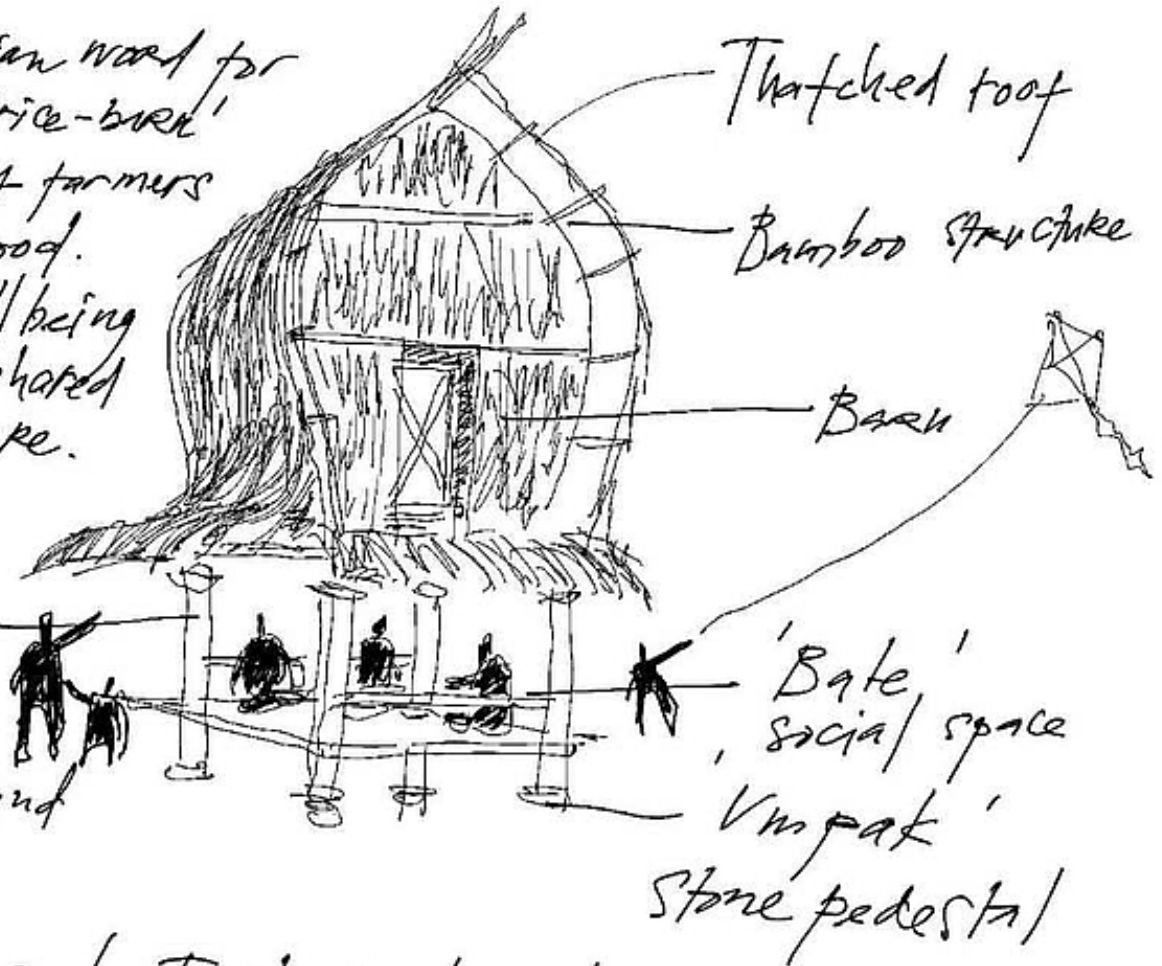 word for
'rice-barn'
farmers
being
shared
Thatched roof
Bamboo structure
Barn
'Bale'
social space
'Umpak'
stone pedestal